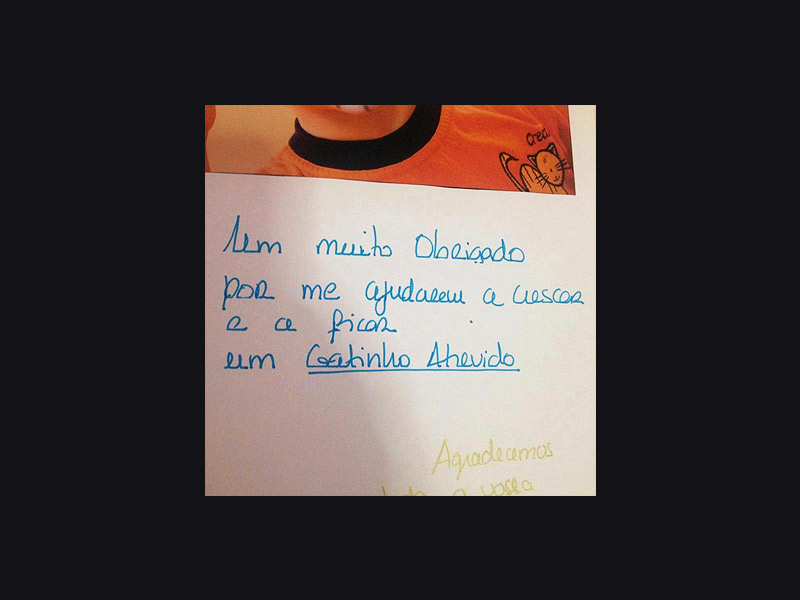 Crea
Um muito Obrigado
por me ajudarem a crescer
e a ficar
um Gatinho Atrevido
Agradecemos
a vossa